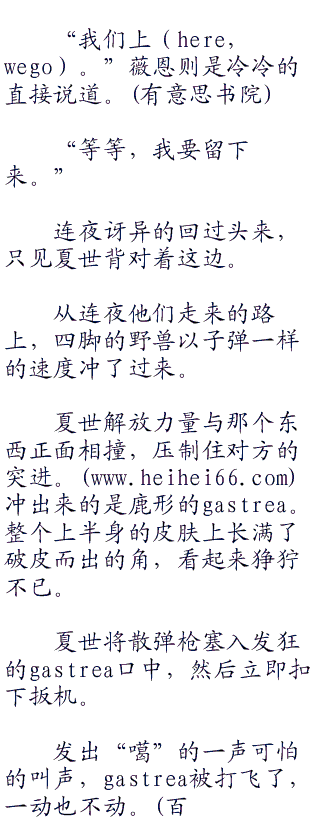 “我们上（here，
wego）。”薇恩则是冷冷的
直接说道。(有意思书院)
“等等，我要留下
来。”
连夜讶异的回过头来，
只见夏世背对着这边。
从连夜他们走来的路
上，四脚的野兽以子弹一样
的速度冲了过来。
夏世解放力量与那个东
西正面相撞，压制住对方的
突进。(www.heihei66.com)
冲出来的是鹿形的gastrea。
整个上半身的皮肤上长满了
破皮而出的角，看起来狰狞
不已。
夏世将散弹枪塞入发狂
的gastrea口中，然后立即扣
下扳机。
发出“噶”的一声可怕
的叫声，gastrea被打飞了，
一动也不动。(百